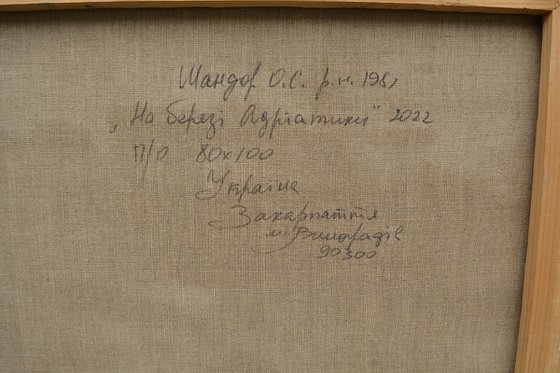 Шандор О.С. р.н. 1981
„На березі Адріатики" 2022
П/О 80х100
Україна
Закарпаття
м Виноградів
90300